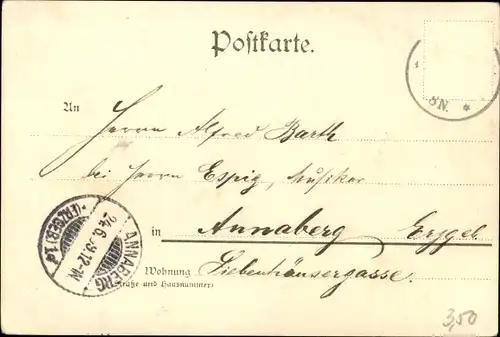 Postkarte.
8N. *
An
Herrn Alfred Barth
bei Herrn Espig, Musiker
in Annaberg Erzgeb
Wohnung Siebenhäusergasse.
(Straße und Hausnummer)
ANNABERG
24.6.99.12-1N
*(ERZGEB.)1d
3,50